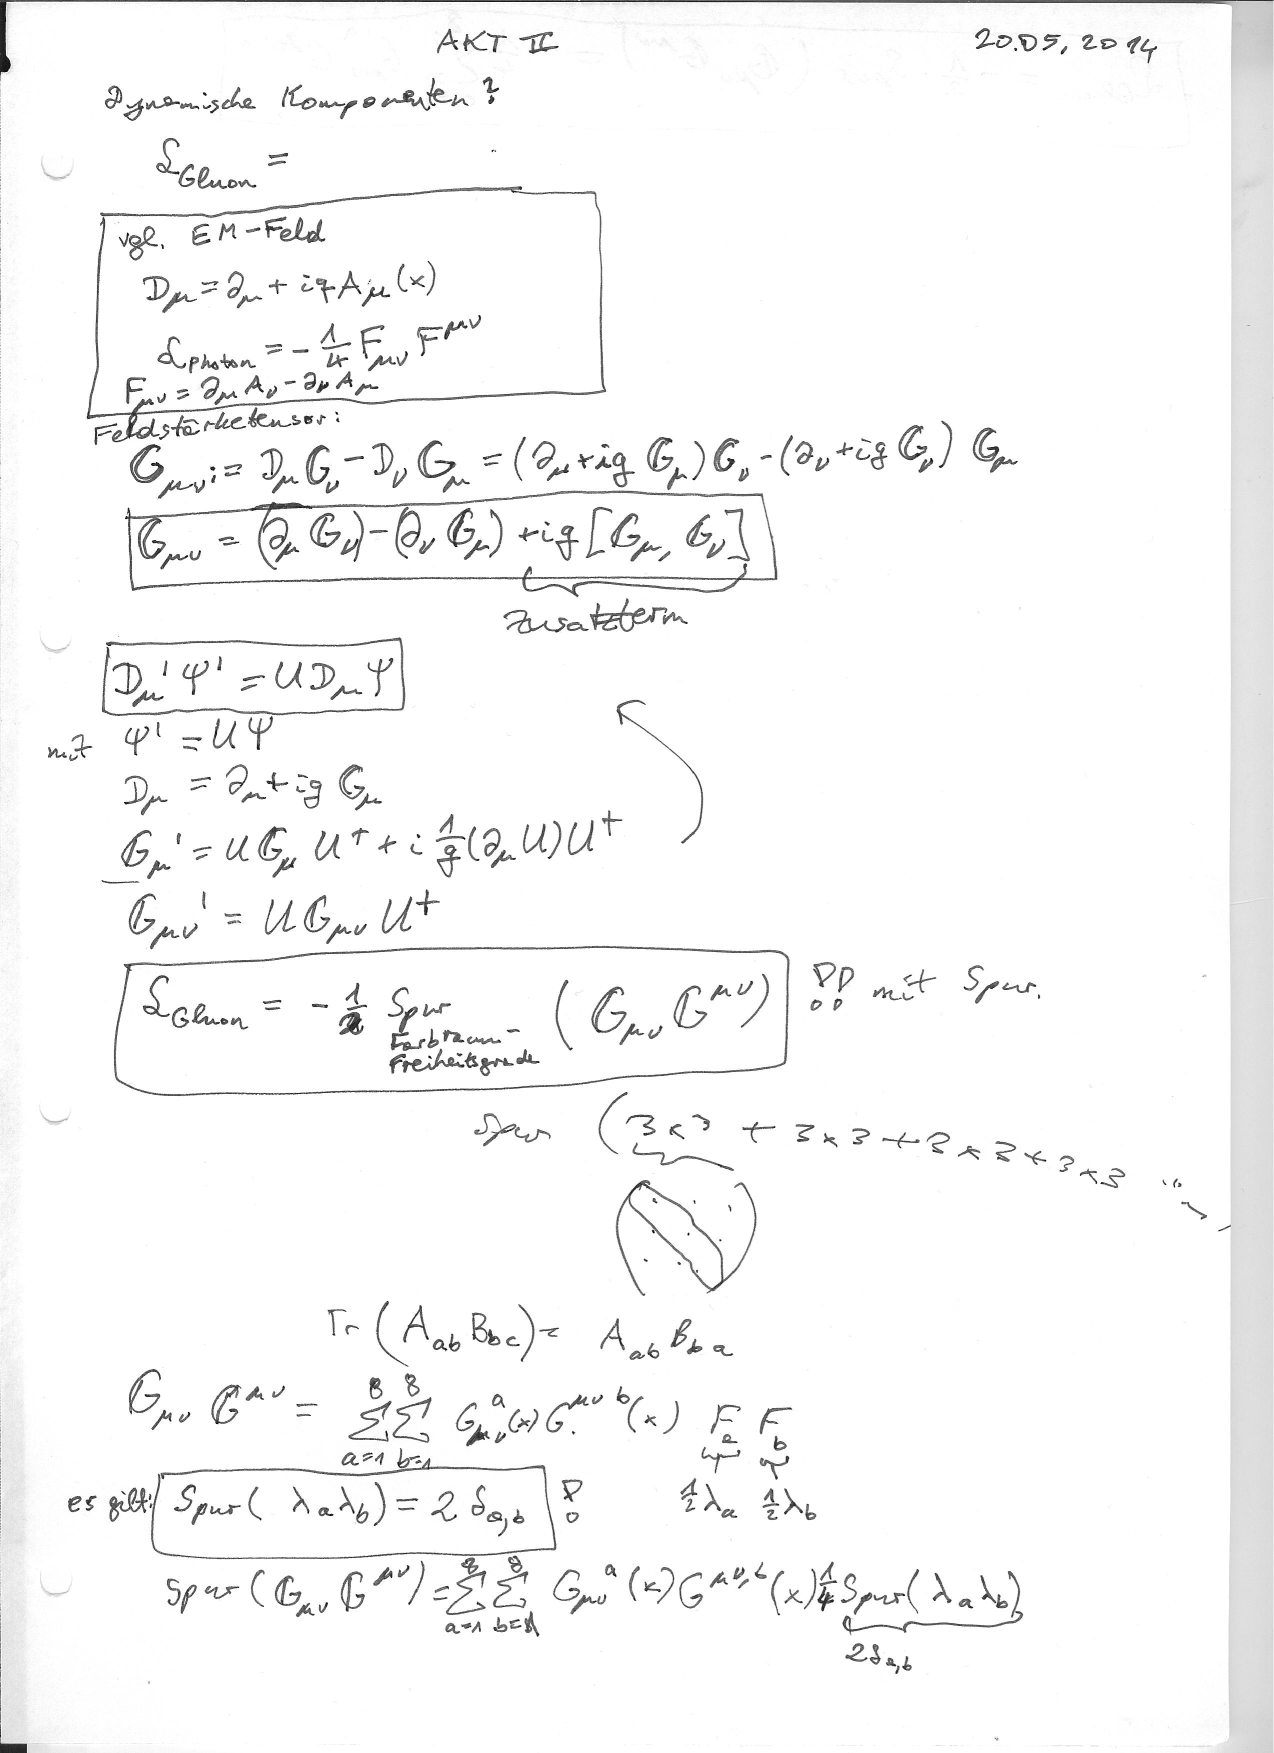 AKT II 20.05.2014
Dynamische Komponenten?
ℒ_Gluon =
vgl. EM-Feld
D_μ = ∂_μ + iq A_μ(x)
ℒ_Photon = -1/4 F_μν F^μν
F_μν = ∂_μ A_ν - ∂_ν A_μ
Feldstärketensor:
𝔾_μν := D_μ 𝔾_ν - D_ν 𝔾_μ = (∂_μ + ig 𝔾_μ) 𝔾_ν - (∂_ν + ig 𝔾_ν) 𝔾_μ
𝔾_μν = (∂_μ 𝔾_ν) - (∂_ν 𝔾_μ) + ig [𝔾_μ, 𝔾_ν]
Zusatzterm
D_μ' Ψ' = U D_μ Ψ
mit Ψ' = U Ψ
D_μ = ∂_μ + ig 𝔾_μ
𝔾_μ' = U 𝔾_μ U^† + i 1/g (∂_μ U) U^†
𝔾_μν' = U 𝔾_μν U^†
ℒ_Gluon = -1/2 Spur (𝔾_μν 𝔾^μν) !! mit Spur.
Farbraum-
Freiheitsgrade
Spur (3x3 + 3x3 + 3x3 + 3x3 ...
Tr (A_ab B_bc) = A_ab B_ba
𝔾_μν 𝔾^μν = Σ_{a=1}^8 Σ_{b=1}^8 G_μν^a(x) G^μν b(x) F_a F_b
1/2 λ_a 1/2 λ_b
es gilt: Spur(λ_a λ_b) = 2 δ_a,b !
Spur (𝔾_μν 𝔾^μν) = Σ_{a=1}^8 Σ_{b=1}^8 G_μν^a(x) G^μν,b(x) 1/4 Spur(λ_a λ_b)
2δ_a,b